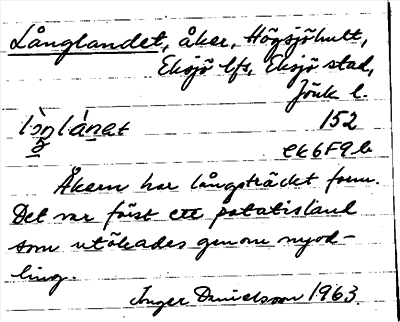 Långlandet, åker, Högsjöhult,
Eksjö lfs, Eksjö stad,
Jönk l.
152
ek6F9b
Åkern har långsträckt form.
Det var först ett potatisland
som utökades genom nyod-
ling.
Inger Danielsson 1963.